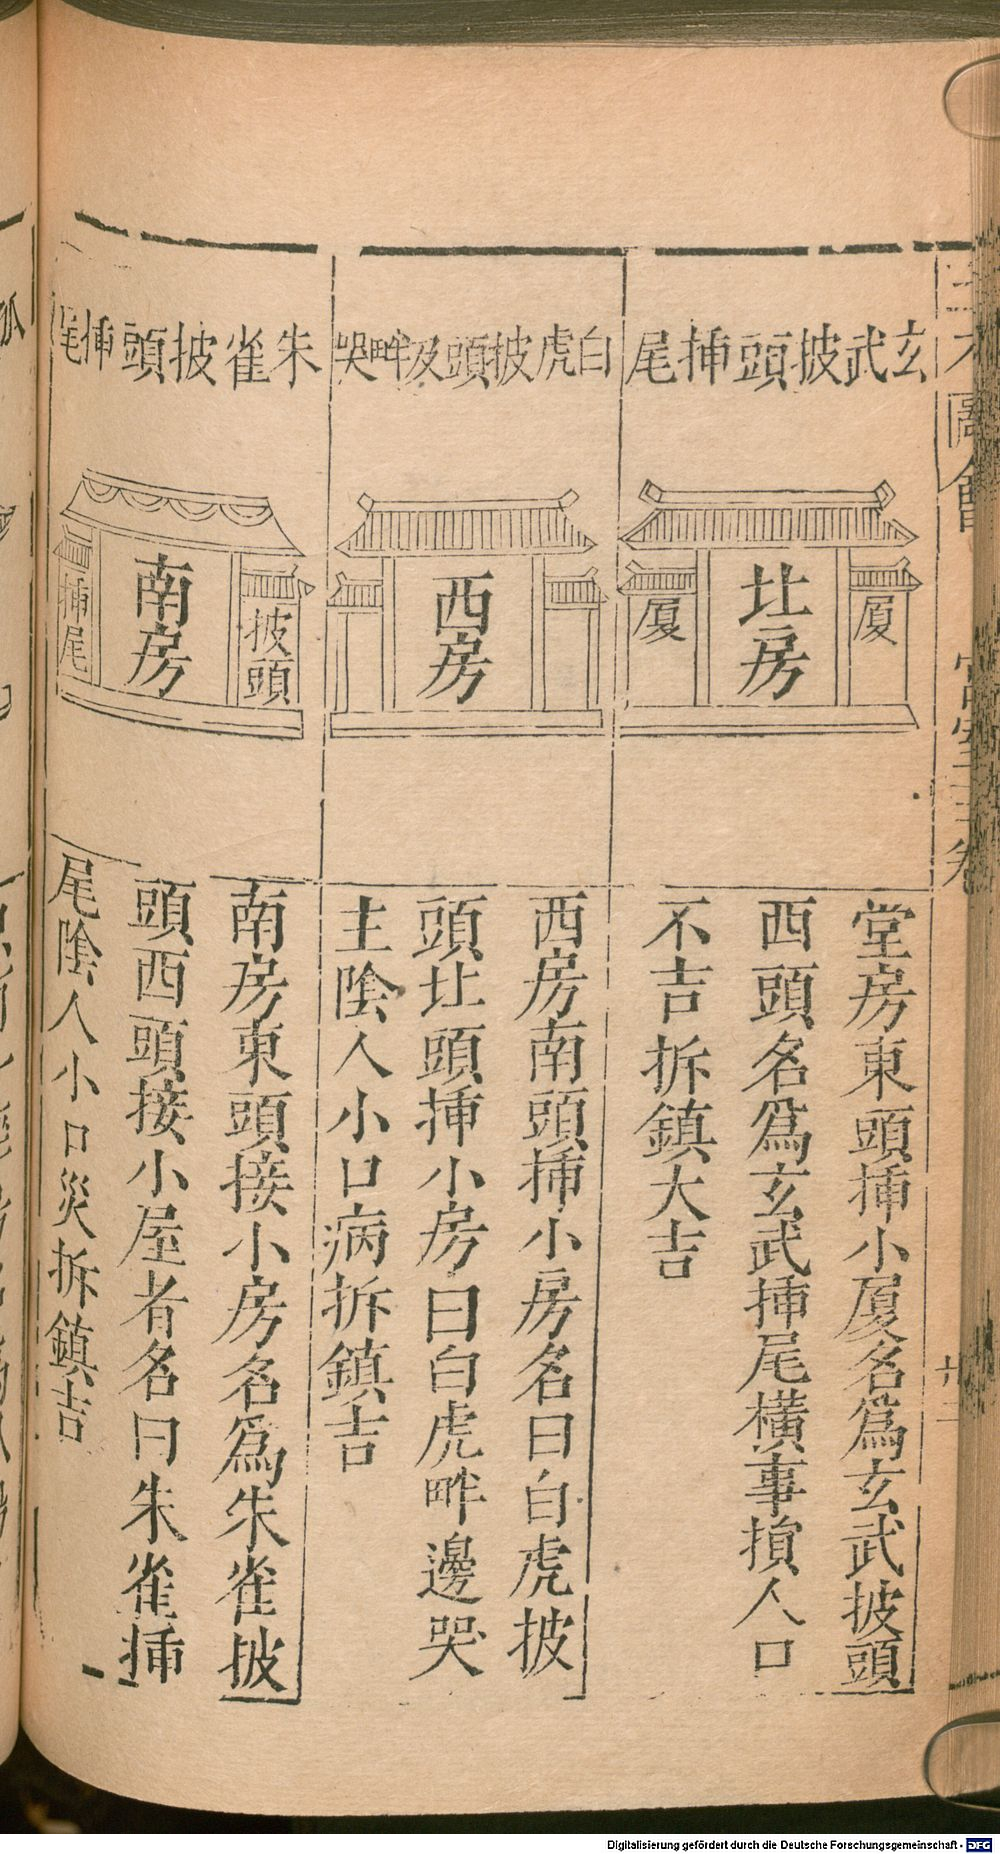 三才圖會
宮室二卷
玄武披頭揷尾
厦
北房
厦
堂房東頭揷小厦名爲玄武披頭
西頭名爲玄武揷尾橫事損人口
不吉拆鎮大吉
白虎披頭及畔哭
西房
西房南頭揷小房名曰白虎披
頭北頭揷小房曰白虎畔邊哭
主陰人小口病拆鎮吉
朱雀披頭揷尾
披頭
南房
揷尾
南房東頭接小房名爲朱雀披
頭西頭接小屋者名曰朱雀揷
尾陰人小口災拆鎮吉
Digitalisierung gefördert durch die Deutsche Forschungsgemeinschaft - DFG